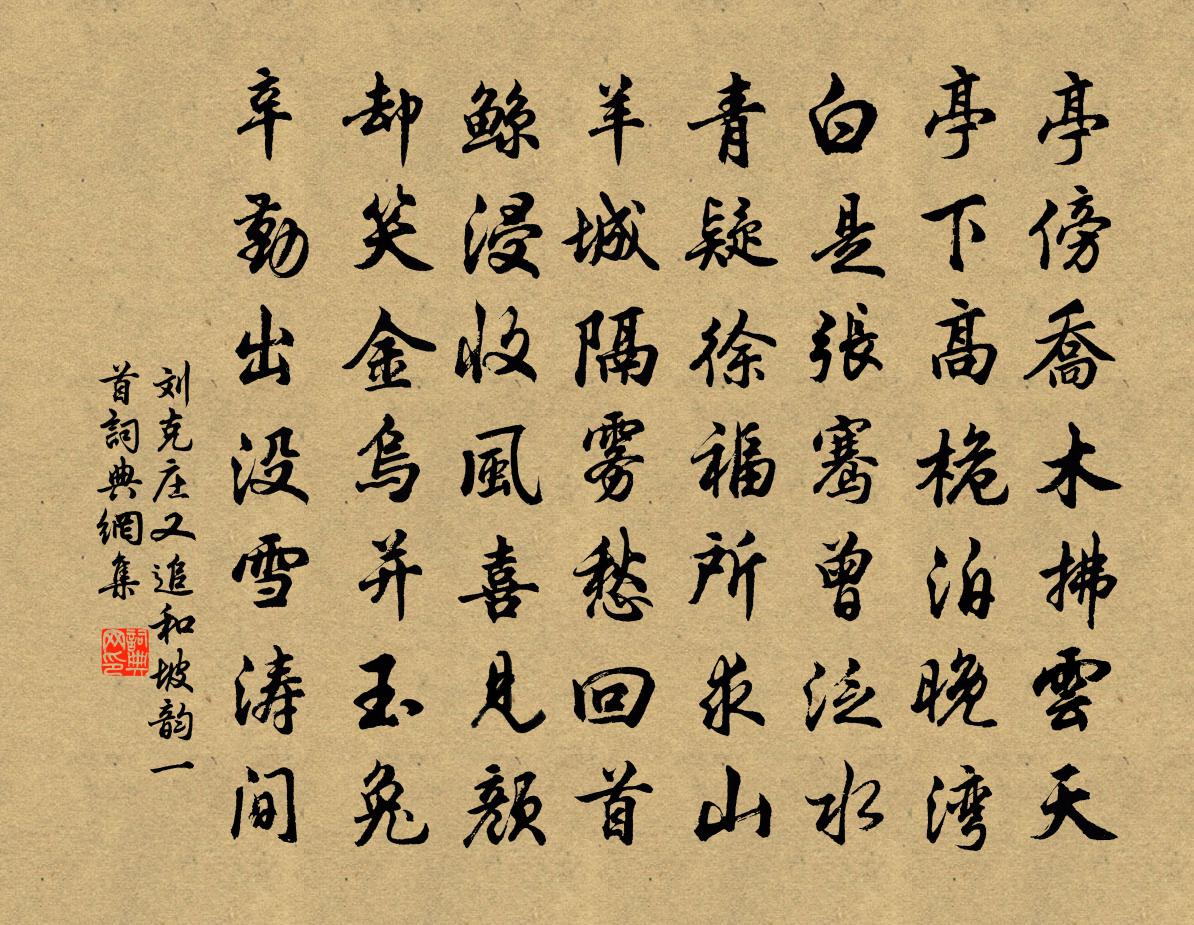 亭傍喬木拂雲天
亭下高桅泊晚湾
白是張騫曾泛水
青疑徐福所求山
羊城隔雾愁回首
鲸浸收風喜見顔
却笑金烏并玉兔
辛勤出没雪涛间
刘克庄又追和坡韵一
首詞典網集
詞典
网印